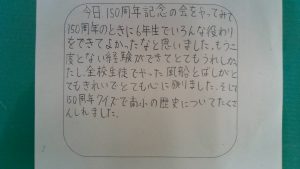 今日150周年記念の会をやってみて
150周年のときに6年生でいろんな役わり
をできてよかったなと思いました。もう二
度とない経験ができてとてもうれしか
たし、全校生徒でやった風船とばしがと
てもきれいでとても心に残りました。そして
150周年クイズで南小の歴史についてたくさ
んしれました。